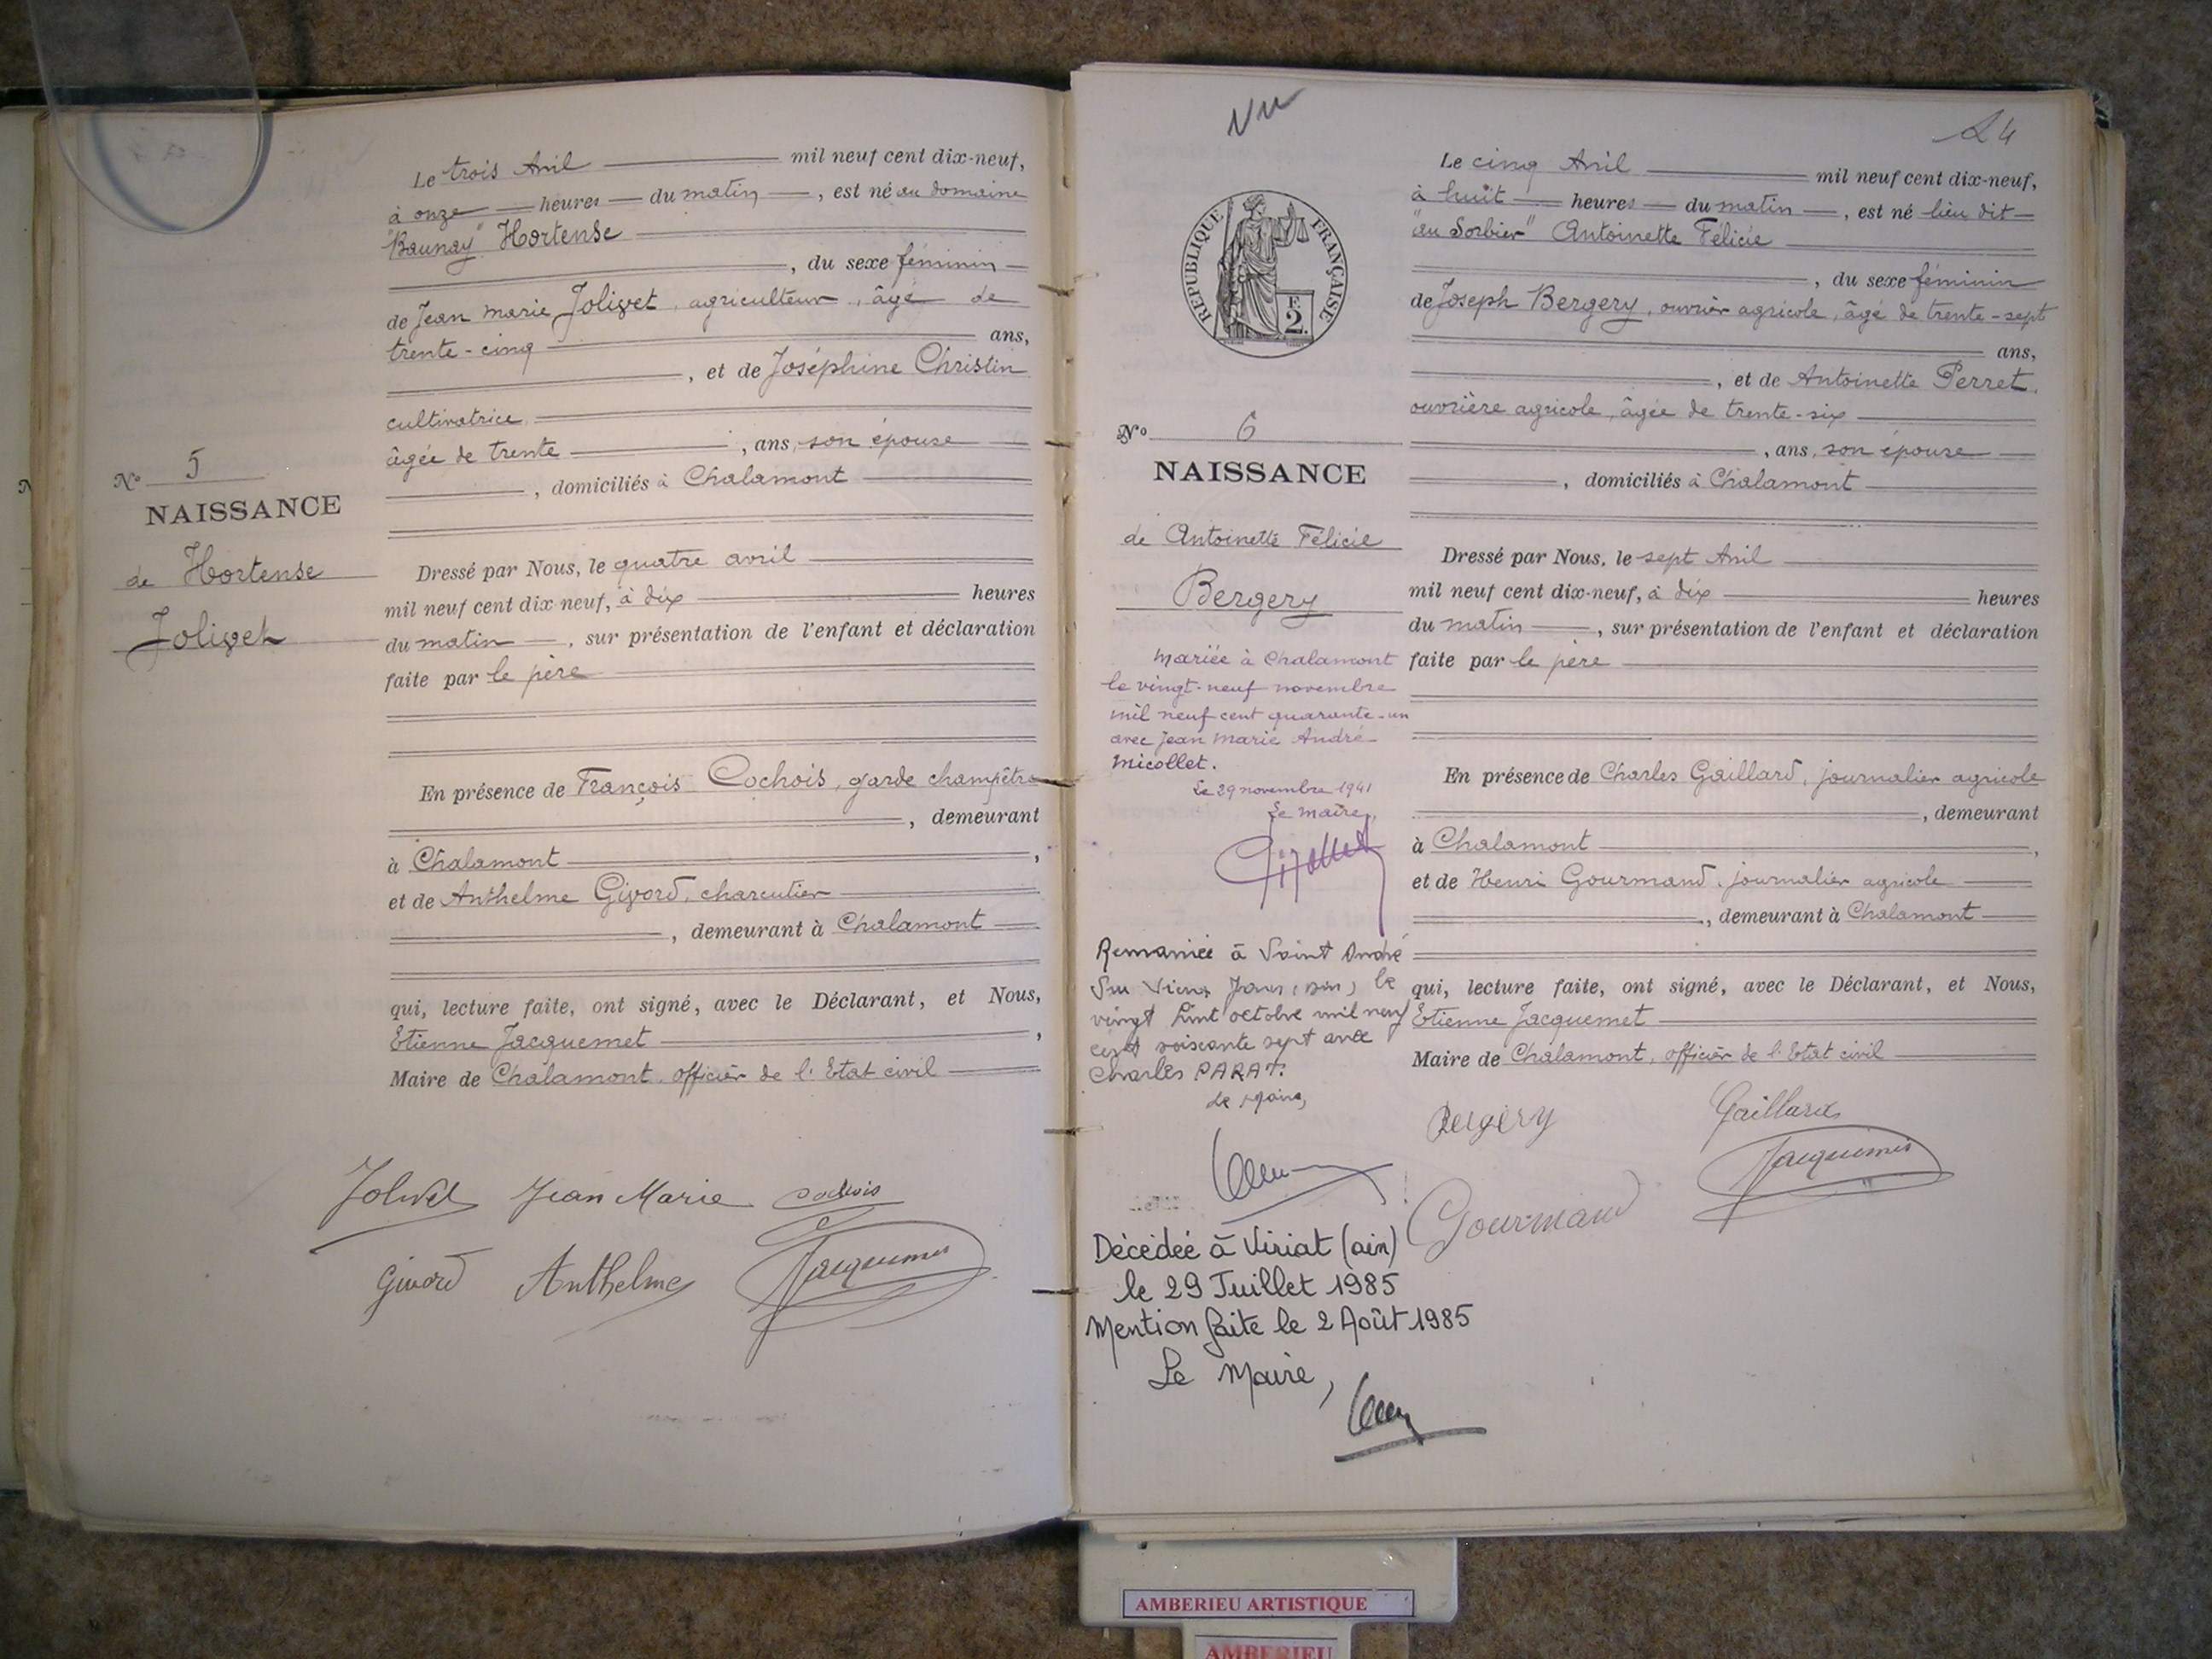 Le trois Avril mil neuf cent dix-neuf,
à onze heures du matin, est né au domaine
"Baunay" Hortense
, du sexe féminin
de Jean Marie Jolivet, agriculteur, âgé de
trente-cinq ans,
, et de Joséphine Christin
cultivatrice
âgée de trente, ans, son épouse
, domiciliés à Chalamont
N° 5
NAISSANCE
de Hortense
Jolivet
Dressé par Nous, le quatre avril
mil neuf cent dix-neuf, à dix heures
du matin, sur présentation de l'enfant et déclaration
faite par le père
En présence de François Cochois, garde champêtre
, demeurant
à Chalamont,
et de Anthelme Givord, charcutier
, demeurant à Chalamont
qui, lecture faite, ont signé, avec le Déclarant, et Nous,
Etienne Jacquemet,
Maire de Chalamont, officier de l'Etat civil
Jolivet Jean Marie Cochois
Givord Anthelme Jacquemet
Vu
24
REPUBLIQUE FRANÇAISE
F.
2.
Le cinq Avril mil neuf cent dix-neuf,
à huit heures du matin, est né lieu dit
"au Sorbier" Antoinette Félicie
, du sexe féminin
de Joseph Bergery, ouvrier agricole, âgé de trente-sept
ans,
, et de Antoinette Perret,
ouvrière agricole, âgée de trente-six
, ans, son épouse
, domiciliés à Chalamont
N° 6
NAISSANCE
de Antoinette Félicie
Bergery
Mariée à Chalamont
le vingt-neuf novembre
mil neuf cent quarante-un
avec Jean Marie André
Micollet.
Le 29 novembre 1941
Le Maire,
Remariée à Saint André
Sur Vieux Jonc (Ain) le
vingt huit octobre mil neuf
cent soixante sept avec
Charles PARAT.
Le Maire,
Décédée à Viriat (ain)
le 29 Juillet 1985
Mention faite le 2 Août 1985
Le Maire,
Dressé par Nous, le sept Avril
mil neuf cent dix-neuf, à dix heures
du matin, sur présentation de l'enfant et déclaration
faite par le père
En présence de Charles Gaillard, journalier agricole
, demeurant
à Chalamont,
et de Henri Gourmand, journalier agricole
, demeurant à Chalamont
qui, lecture faite, ont signé, avec le Déclarant, et Nous,
Etienne Jacquemet
Maire de Chalamont, officier de l'Etat civil
Bergery Gaillard
Gourmand Jacquemet
AMBERIEU ARTISTIQUE
AMBERIEU